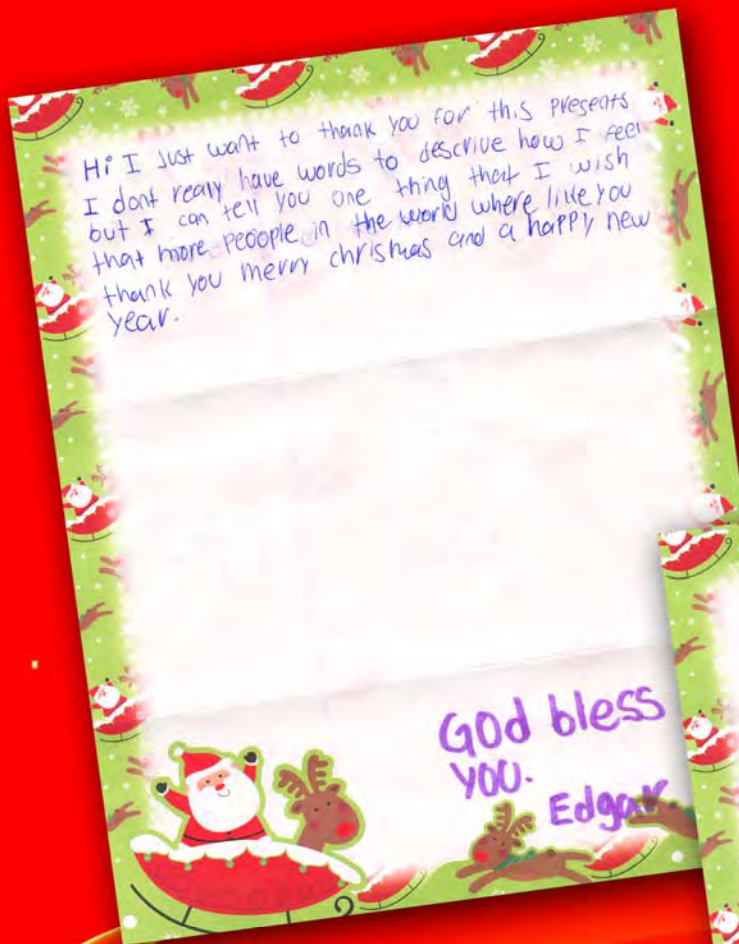 Hi I Just want to thank you for this presents
I dont realy have words to descrive how I feel
but I can tell you one thing that I wish
that more peoople in the world where like you
thank you merry chrismas and a happy new
year.
God bless
you.
Edgar